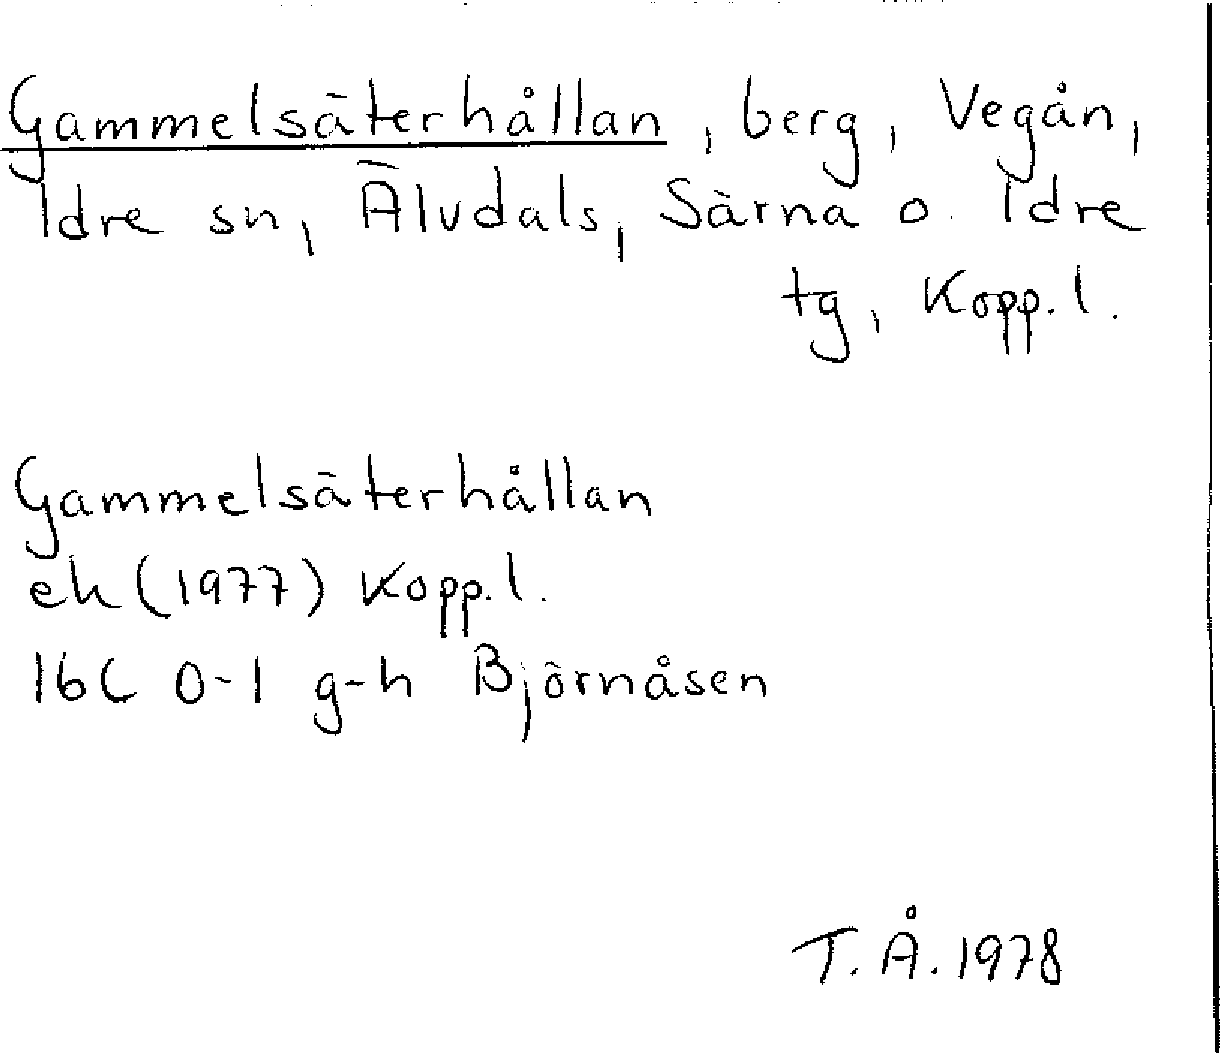 Gammelsäterhållan, berg, Vegån,
Idre sn, Älvdals, Särna o. Idre
tg, Kopp. l.
Gammelsäterhållan
ek (1977) Kopp. l.
16C 0-1 g-h Björnåsen
T. Å. 1978